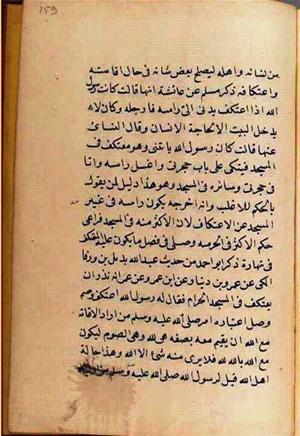 ١٥٩
من لسانه واهله ليصلح بعض شانه في حال اقامته
واعتكافه ذكر مسلم عن عائشة انها قالت كانت رسول
الله اذا اعتكف يدني الى راسه فارجله وكان لا
يدخل البيت الا لحاجة الانسان وقال النسائ
عنها قالت كان رسول الله ياتيني وهو معتكف في
المسجد فيتكى على باب حجرتي واغسل راسه وانا
في حجرتي وسائره في المسجد وهو هذا دليل لمن يقول
بالحكم للاغلب وانه اخرجه بكون راسه في غير
المسجد عن الاعتكاف لان الاكثر منه في المسجد فراعى
حكم الاكثر في الحرمه وصل في فصل ما يكون عليه المعتكف
في نهاره ذكر ابو احمد من حديث عبد الله بديل بن ورقا
المكي عن عمرو بن دينار عن ابن عمر عن عمر انه نذر ان
يعتكف في المسجد الحرام فقال له رسول الله اعتكف وصم
وصل اعتباره امر صلى الله عليه وسلم من اراد الاقامة
مع الله ان يقيم معه بصفه هي لله وهي الصوم ليكون
مع الله بالله لله فلا يرى منه شئ الا الله وهذا حالة
اهل الله قيل لرسول الله صلى الله عليه وسلم من